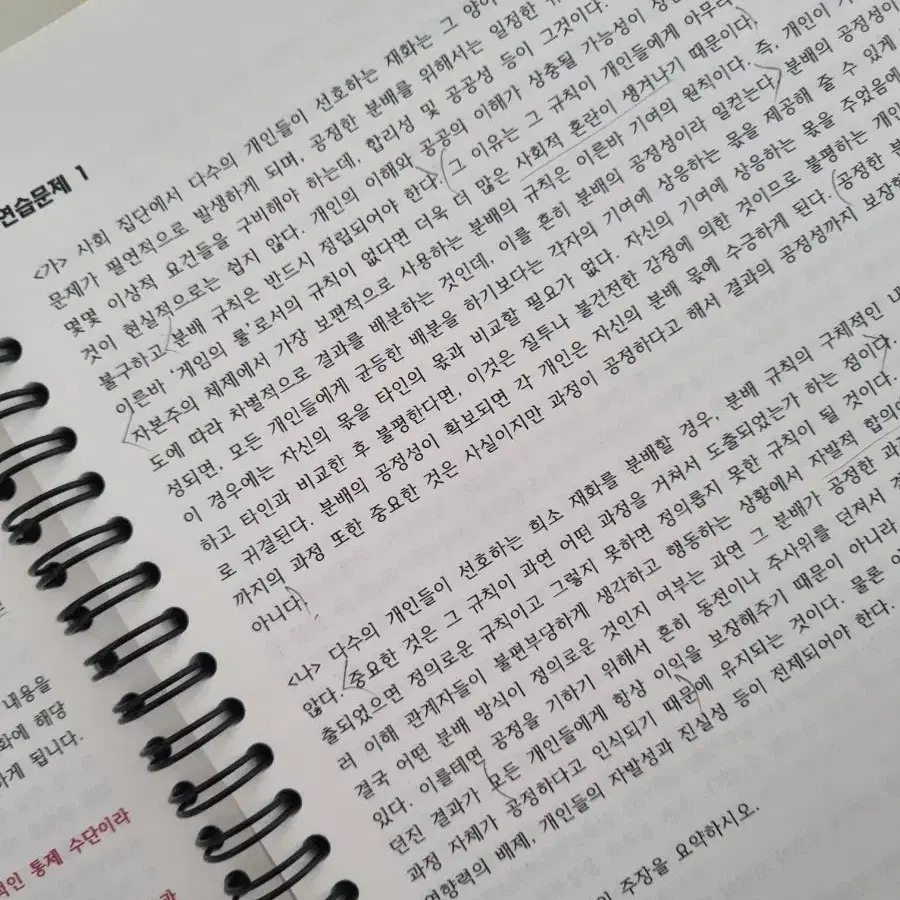 연습문제 1
<가> 사회 집단에서 다수의 개인들이 선호하는 재화는 그 양이
문제가 필연적으로 발생하게 되며, 공정한 분배를 위해서는 일정한
몇몇 이상적 요건들을 구비해야 하는데, 합리성 및 공공성 등이 그것이다.
것이 현실적으로는 쉽지 않다. 개인의 이해와 공공의 이해가 상충될 가능성이
불구하고 분배 규칙은 반드시 정립되어야 한다. 그 이유는 그 규칙이 개인들에게
이른바 '게임의 룰'로서의 규칙이 없다면 더욱 더 많은 사회적 혼란이 생겨나기 때문이다.
자본주의 체제에서 가장 보편적으로 사용하는 분배의 규칙은 이른바 기여의 원칙이다. 즉, 개인이
도에 따라 차별적으로 결과를 배분하는 것인데, 이를 흔히 분배의 공정성이라 일컫는다. 분배의 공정성이
성되면, 모든 개인들에게 균등한 배분을 하기보다는 각자의 기여에 상응하는 몫을 제공해 줄 수 있게
이 경우에는 자신의 몫을 타인의 몫과 비교할 필요가 없다. 자신의 기여에 상응하는 몫을 주었음에
하고 타인과 비교한 후 불평한다면, 이것은 질투나 불건전한 감정에 의한 것이므로 불평하는 개인
로 귀결된다. 분배의 공정성이 확보되면 각 개인은 자신의 분배 몫에 수긍하게 된다. 공정한
까지의 과정 또한 중요한 것은 사실이지만 과정이 공정하다고 해서 결과의 공정성까지
아니다.
<나> 다수의 개인들이 선호하는 희소 재화를 분배할 경우, 분배 규칙의 구체적인
않다. 중요한 것은 그 규칙이 과연 어떤 과정을 거쳐서 도출되었는가 하는 점이다.
출되었으면 정의로운 규칙이고 그렇지 못하면 정의롭지 못한 규칙이 될 것이다.
러 이해 관계자들이 불편부당하게 생각하고 행동하는 상황에서 자발적 합의에
결국 어떤 분배 방식이 정의로운 것인지 여부는 과연 그 분배가 공정한
있다. 이를테면 공정을 기하기 위해서 흔히 동전이나 주사위를 던져서
던진 결과가 모든 개인들에게 항상 이익을 보장해주기 때문이 아니라
과정 자체가 공정하다고 인식되기 때문에 유지되는 것이다. 물론
영향력의 배제, 개인들의 자발성과 진실성 등이 전제되어야 한다.
주장을 요약하시오.
내용을
해당
하게 됩니다.
적인 통제 수단이라